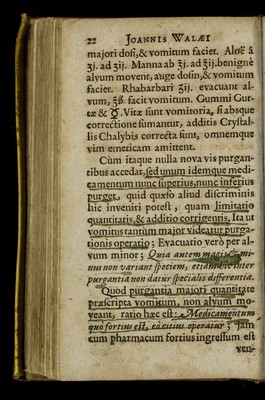 22 JOANNIS WALÆI
majori dosi, & vomitum faciet. Aloë à
ʒj. ad ʒij. Manna ab ℥j. ad ℥ij. benignè
alvum movent, auge dosin, & vomitum
faciet. Rhabarbari ʒij. evacuant al-
vum, ℥ß. facit vomitum. Gummi Gut-
tæ & ☿. Vitæ sunt vomitoria, si absque
correctione sumantur, additis Crystal-
lis Chalybis correcta sunt, omnemque
vim emeticam amittent.
Cùm itaque nulla nova vis purgan-
tibus accedat, sed unum idemque medi-
camentum nunc superius, nunc inferius
purget, quid quæso aliud discriminis
hic inveniri potest, quam limitatio
quantitatis, & additio corrigentis, Ita ut
vomitus tantùm major videatur purga-
tionis operatio; Evacuatio verò per al-
vum minor; Quia autem magis & mi-
nus non variant speciem, etiam hic inter
purgantia non datur specialis differentia.
Quod purgantia majori quantitate
præscripta vomitum, non alvum mo-
veant, ratio hæc est: Medicamentum
quo fortius est, eò citius operatur; Jam
cum pharmacum fortius ingressum est
ven-